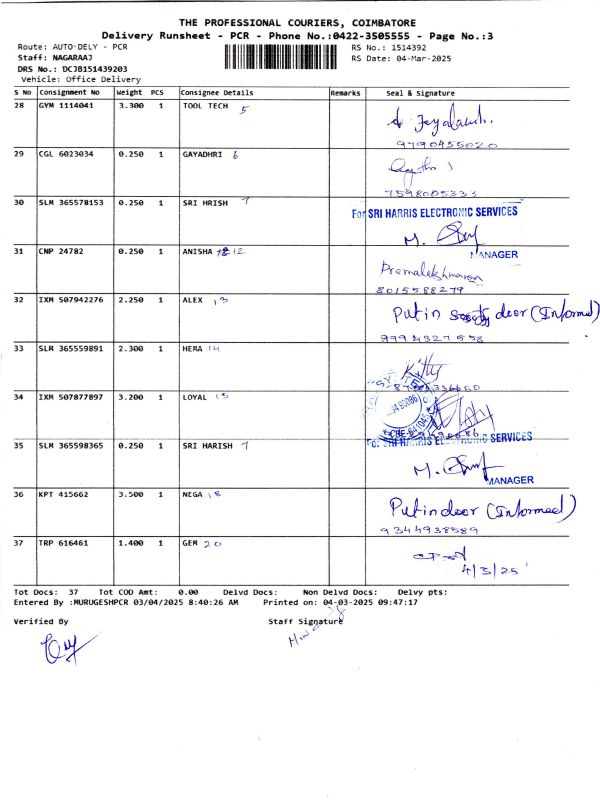 THE PROFESSIONAL COURIERS, COIMBATORE
Delivery Runsheet - PCR - Phone No.:0422-3505555 - Page No.:3
Route: AUTO-DELY - PCR
RS No.: 1514392
Staff: NAGARAAJ
RS Date: 04-Mar-2025
DRS No.: DCJB151439203
Vehicle: Office Delivery
S No Consignment No Weight PCS Consignee Details Remarks Seal & Signature
28 GYM 1114041 3.300 1 TOOL TECH 5
9790455020
29 CGL 6023034 0.250 1 GAYADHRI 6
7598005333
30 SLM 365578153 0.250 1 SRI HRISH 7
For SRI HARRIS ELECTRONIC SERVICES
M.
MANAGER
31 CNP 24782 0.250 1 ANISHA 12
8015588279
32 IXM 507942276 2.250 1 ALEX 13
Put in door (Informed)
9994327558
33 SLM 365559891 2.300 1 HEMA 14
34 IXM 507877897 3.200 1 LOYAL 15
35 SLM 365598365 0.250 1 SRI HARISH 7
For SRI HARRIS ELECTRONIC SERVICES
M.
MANAGER
36 KPT 415662 3.500 1 NEGA 18
Put in door (Informed)
9344938589
37 TRP 616461 1.400 1 GEM 20
4/3/25
Tot Docs: 37 Tot COD Amt: 0.00 Delvd Docs: Non Delvd Docs: Delvy pts:
Entered By :MURUGESHPCR 03/04/2025 8:40:26 AM Printed on: 04-03-2025 09:47:17
Verified By Staff Signature